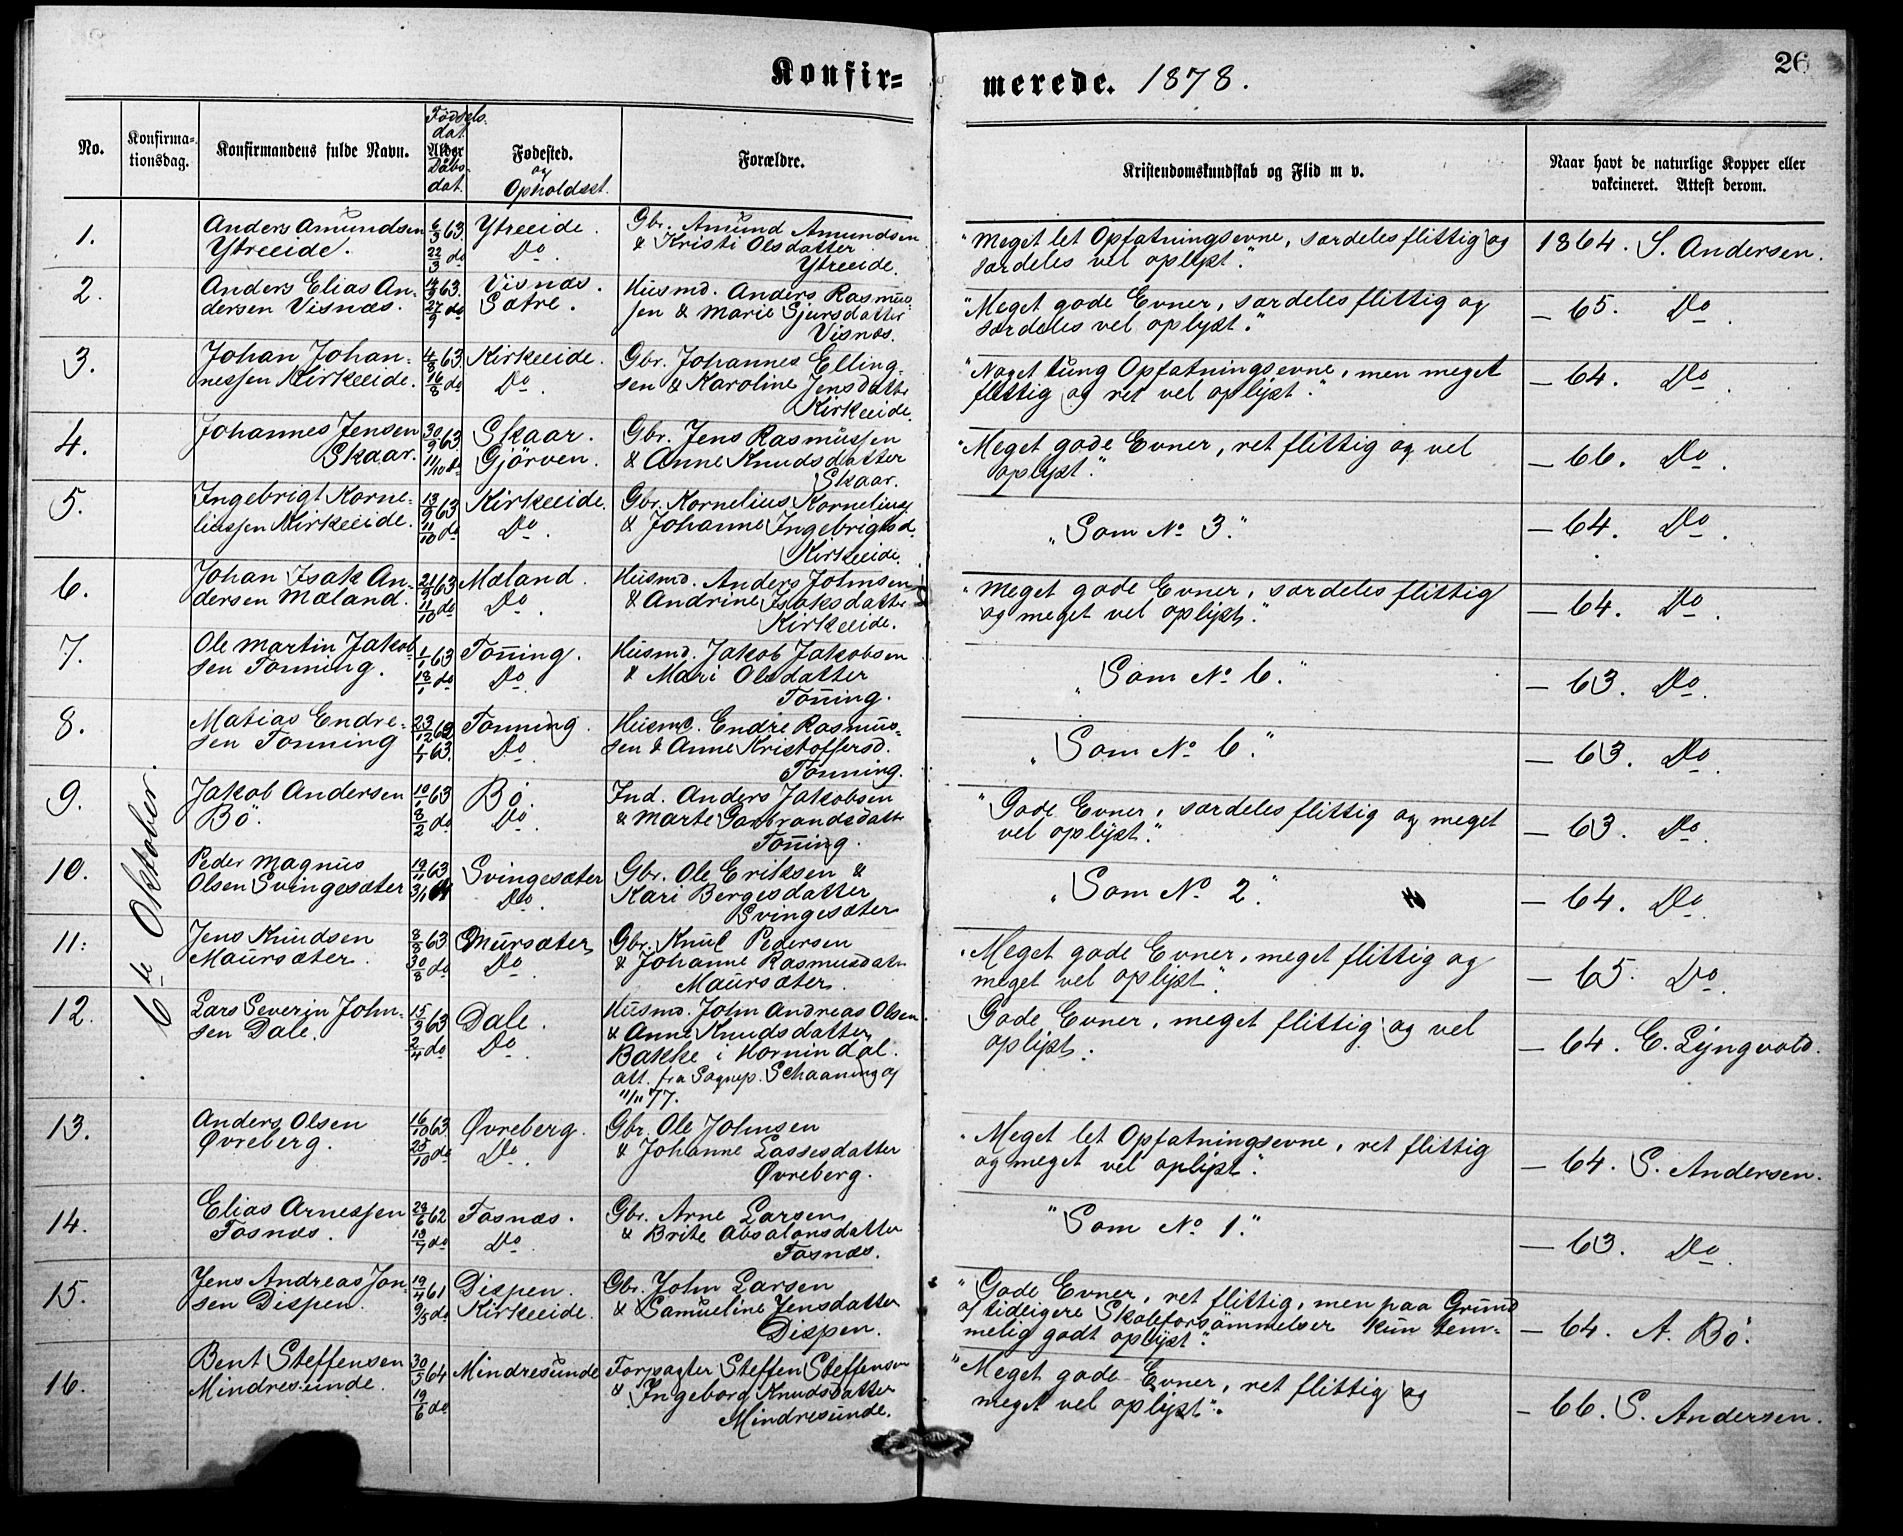 Konfir=
merede. 1878.
26
No.
Konfirma-
tionsdag.
Konfirmandens fulde Navn.
Fødsels.
dat.
Alder
Daabs-
dat.
Fødested.
og
Opholdsst.
Forældre.
Kristendomskundskab og Flid m v.
Naar havt de naturlige Kopper eller
vakcineret. Attest derom.
6te Oktober.
1.
Anders Amundsen
Ytreeide.
6/3 63.
22/3 do
Ytreeide.
Do.
Gbr. Amund Amundsen
& Kristi Olsdatter
Ytreeide.
"Meget let Opfatningsevne, særdeles flittig og
særdeles vel oplyst."
1864. S. Andersen.
2.
Anders Elias An-
dersen Visnæs.
63.
27/9 do
Visnæs.
Sætre.
Husmd. Anders Rasmus-
sen & Marie Sjursdatter
Visnæs.
"Meget gode Evner, særdeles flittig og
særdeles vel oplyst."
— 65. Do.
3.
Johan Johan-
nessen Kirkeeide.
4/8 63
16/8 do
Kirkeeide.
Do.
Gbr. Johannes Elling-
sen & Karoline Jensdatter
Kirkeeide.
"Noget tung Opfatningsevne, men meget
flittig og ret vel oplyst."
— 64. Do.
4.
Johannes Jensen
Skaar.
30/9 63
11/10 do
Skaar.
Gjörven.
Gbr. Jens Rasmussen
& Anne Knudsdatter
Skaar.
"Meget gode Evner, ret flittig og vel
oplyst."
— 66. Do.
5.
Ingebrigt Korne-
liussen Kirkeeide.
13/9 63
11/10 do
Kirkeeide.
Do.
Gbr. Kornelius Kornelius
& Johanne Ingebrigtsd.
Kirkeeide.
"Som No. 3."
— 64. Do.
6.
Johan Isak An-
dersen Mæland.
63
11/10 do
Mæland.
Do.
Husmd. Anders Johnsen
& Andrine Isaksdatter
Kirkeeide.
"Meget gode Evner, særdeles flittig
og meget vel oplyst."
— 64. Do.
7.
Ole Martin Jakob-
sen Tonning.
1/1 63
18/1 do
Toning.
Do.
Husmd. Jakob Jakobsen
& Mari Olsdatter
Toning.
"Som No. 6."
— 63. Do.
8.
Matias Endre-
sen Tonning
23/12 62
1/1 63.
Tonning.
Do.
Husmd. Endre Rasmus-
sen & Anne Kristoffersd.
Tonning.
"Som No. 6."
— 63. Do.
9.
Jakob Andersen
Bö.
10/1 63
8/2 do
Bö.
Do.
Ind. Anders Jakobsen
& Marte Gabrandsdatt
Toning.
"Gode Evner, særdeles flittig og meget
vel oplyst."
— 63. Do.
10.
Peder Magnus
Olsen Svingesæter
19/11 63
3/1 64
Svingesæter
Do.
Gbr. Ole Eriksen &
Kari Bergesdatter
Svingesæter
"Som No. 2."
— 64. Do.
11.
Jens Knudsen
Maursæter.
63
30/8 do
Mursæter
Do.
Gbr. Knut Pedersen
& Johanne Rasmusdatr
Maursæter.
"Meget gode Evner, meget flittig og
meget vel oplyst."
— 65. Do.
12.
Lars Severin John-
sen Dale.
15/3 63
2/4 do
Dale.
Do.
Husmd. John Andreas Olsen
& Anne Knudsdatter
Bakke i Hornindal.
att. fra Sognep. Schaaning af
11/11 77.
Gode Evner, meget flittig og vel
oplyst.
— 64. E. Lyngvold.
13.
Anders Olsen
Øvreberg.
16/10 63
25/10 do
Øvreberg.
Do.
Gbr. Ole Johnsen
& Johanne Lassesdatter
Øvreberg.
"Meget let Opfatningsevne, ret flittig
og meget vel oplyst."
— 64. S. Andersen.
14.
Elias Arnessen
Tosnæs.
29/6 62
13/7 do
Fosnæs.
Do.
Gbr. Arne Larsen
& Brite Absalonsdatter
Fosnæs.
"Som No. 1."
— 63. Do.
15.
Jens Andreas Jon-
sen Dispen.
19/4 61
9/5 do
Dispen.
Kirkeeide.
Gbr. John Larsen
& Samueline Jensdatter
Dispen.
"Gode Evner, ret flittig, men paa Grund
af tidligere Skoleforsömmelser kun tem-
melig godt oplyst."
— 64. A. Bö.
16.
Bent Steffensen
Mindresunde.
30/5 64
19/6 do
Mindresunde
Forpagter Steffen Steffensen
& Ingeborg Knudsdatter
Mindresunde.
"Meget gode Evner, ret flittig og
meget vel oplyst."
— 66. S. Andersen.